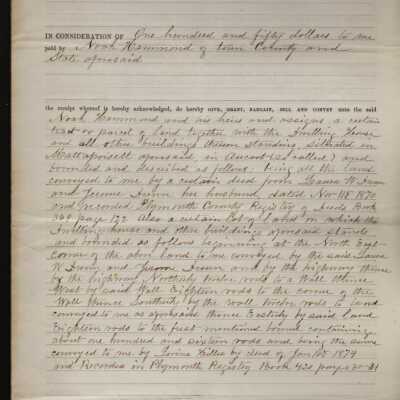 IN CONSIDERATION OF One hundred and fifty dollars to me
paid by Noah Hammond of town County and
State aforesaid
the receipt whereof is hereby acknowledged, do hereby GIVE, GRANT, BARGAIN, SELL AND CONVEY unto the said
Noah Hammond and his heirs and assigns a certain
tract or parcel of land together with the Dwelling House
and all other buildings thereon standing, situated in
Mattapoisett aforesaid, in Aucoot (so called) and
bounded and described as follows: being all the land
conveyed to me by a certain deed from W
and her husband, dated Nov 1870
and recorded Plymouth County Registry of Deeds Book
page 172 Also a certain Lot of Land on which the
Dwelling house and other buildings aforesaid stands
and bounded as follows beginning at the North East
corner of the above land to me conveyed by the said
W and and by the highway thence
by the highway Northerly twelve rods to a Wall thence
West by said Wall Eighteen rods to the corner of the
Wall thence Southerly by the wall twelve rods to land
conveyed to me as aforesaid thence Easterly by said land
Eighteen rods to the first mentioned bound containing
about one hundred and sixteen rods and being the same
conveyed to me by by deed of Jan 1874
and Recorded in Plymouth Registry Book 420 page